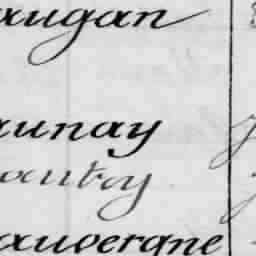 augan
aunay
autoy
auvergne